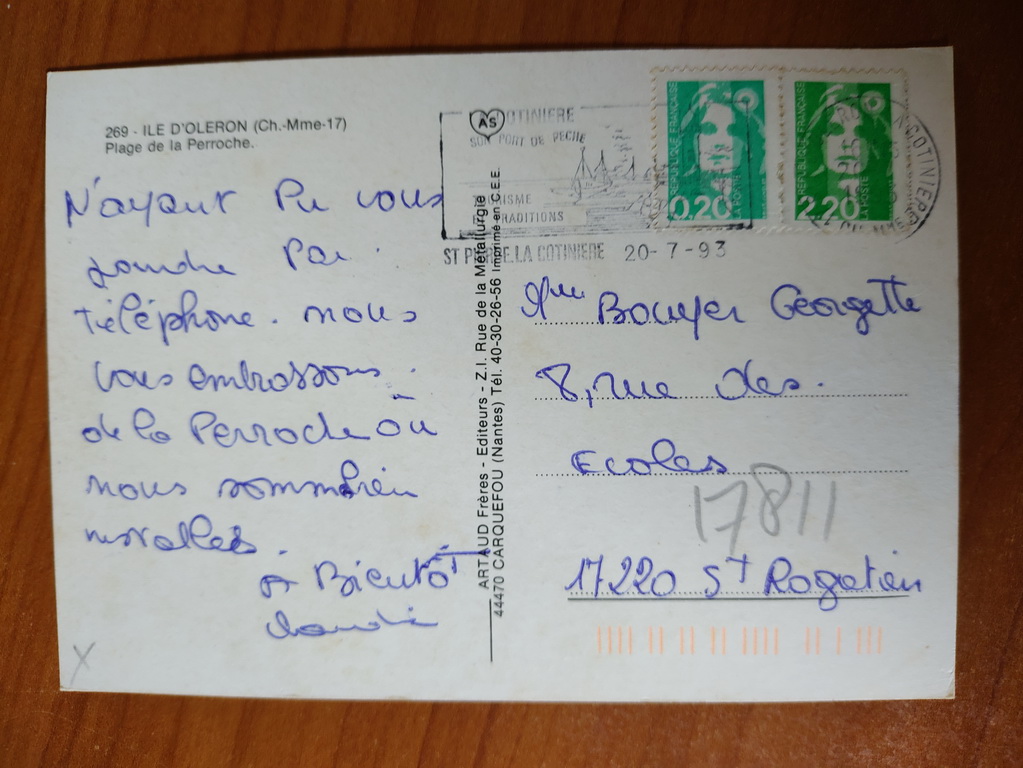 269 - ILE D'OLERON (Ch.-Mme-17)
Plage de la Perroche.
N'ayant Pu vous
joindre Par
téléphone. nous
vous embrassons.
de la Perroche où
nous sommes bien
installés.
A Bientôt
AS
ARTAUD Frères - Editeurs - Z.I. Rue de la Métallurgie
44470 CARQUEFOU (Nantes) Tél. 40-30-26-56 Imprimé en C.E.E.
COTINIERE
SON PORT DE PECHE
TOURISME
TRADITIONS
ST PIERRE.LA COTINIERE 20-7-93
REPUBLIQUE FRANÇAISE
0,20
LA POSTE
REPUBLIQUE FRANÇAISE
2,20
LA POSTE
COTINIERE
Mme Bouyer Georgette
8, rue des.
Ecoles
17811
17220 St Rogatien
X